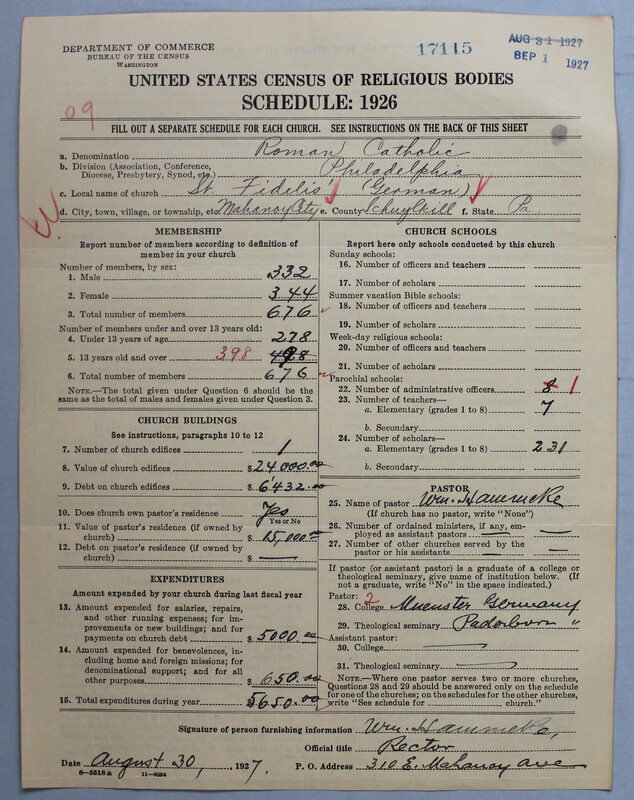 DEPARTMENT OF COMMERCE
BUREAU OF THE CENSUS
WASHINGTON
17115
AUG 31 1927
SEP 1 1927
UNITED STATES CENSUS OF RELIGIOUS BODIES
SCHEDULE: 1926
09
FILL OUT A SEPARATE SCHEDULE FOR EACH CHURCH. SEE INSTRUCTIONS ON THE BACK OF THIS SHEET
a. Denomination Roman Catholic
b. Division (Association, Conference, Diocese, Presbytery, Synod, etc.) Philadelphia
c. Local name of church St. Fidelis (German)
d. City, town, village, or township, etc. Mahanoy City e. County Schuylkill f. State Pa.
MEMBERSHIP
Report number of members according to definition of
member in your church
Number of members, by sex:
1. Male 332
2. Female 344
3. Total number of members 676
Number of members under and over 13 years old:
4. Under 13 years of age 278
5. 13 years old and over 398
6. Total number of members 676
NOTE.—The total given under Question 6 should be
the same as the total of males and females given under Question 3.
CHURCH BUILDINGS
See instructions, paragraphs 10 to 12
7. Number of church edifices 1
8. Value of church edifices $24000.00
9. Debt on church edifices $6432.00
10. Does church own pastor's residence Yes
Yes or No
11. Value of pastor's residence (if owned by
church) $15,000.00
12. Debt on pastor's residence (if owned by
church) $ —
EXPENDITURES
Amount expended by your church during last fiscal year
13. Amount expended for salaries, repairs,
and other running expenses; for im-
provements or new buildings; and for
payments on church debt $5000.00
14. Amount expended for benevolences,
including home and foreign missions; for
denominational support; and for all
other purposes $650.00
15. Total expenditures during year $5650.00
CHURCH SCHOOLS
Report here only schools conducted by this church
Sunday schools:
16. Number of officers and teachers
17. Number of scholars
Summer vacation Bible schools:
18. Number of officers and teachers
19. Number of scholars
Week-day religious schools:
20. Number of officers and teachers
21. Number of scholars
Parochial schools:
22. Number of administrative officers 8 1
23. Number of teachers—
a. Elementary (grades 1 to 8) 7
b. Secondary
24. Number of scholars—
a. Elementary (grades 1 to 8) 231
b. Secondary
PASTOR
25. Name of pastor Wm. Hammeke
(If church has no pastor, write "None")
26. Number of ordained ministers, if any, em-
ployed as assistant pastors —
27. Number of other churches served by the
pastor or his assistants —
If pastor (or assistant pastor) is a graduate of a college or
theological seminary, give name of institution below. (If
not a graduate, write "No" in the space indicated.)
Pastor: 2
28. College Muenster Germany
29. Theological seminary Paderborn "
Assistant pastor:
30. College —
31. Theological seminary —
NOTE.—Where one pastor serves two or more churches,
Questions 28 and 29 should be answered only on the schedule
for one of the churches; on the schedules for the other churches,
write "See schedule for church."
Signature of person furnishing information Wm. Hammeke,
Official title Rector
Date August 30, 1927. P. O. Address 310 E. Mahanoy Ave
8—5518a 11—9054